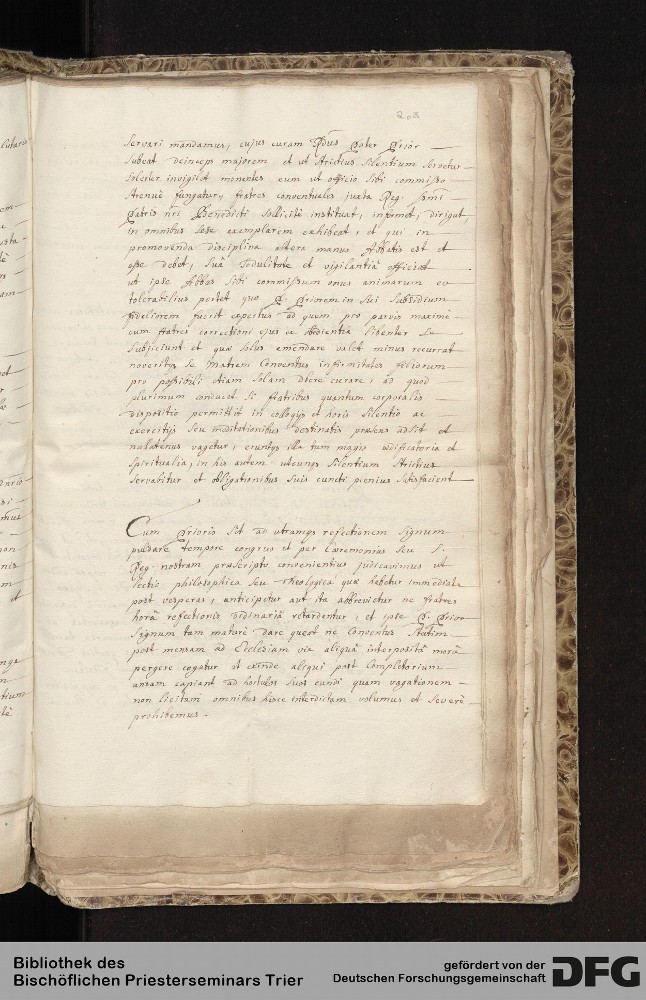 203
servari mandamus, cujus curam Rdus Pater Prior
subeat deinceps majorem et ut strictius silentium servetur
solerter invigilet monentes eum ut officio sibi commisso
strenue fungatur, fratres conventuales juxta Reg. Ssmi
Patris nri Benedicti sollicitè instituat, informet, dirigat,
in omnibus sese exemplarem exhibeat, et qui in
promovenda disciplina altera manus Abbatis est et
esse debet, suâ sedulitate et vigilantiâ efficiat
ut ipse Abbas sibi commissum onus animarum eo
tolerabilius portet quo P. Priorem in sui subsidium
fideliorem fuerit expertus ad quem pro parvis maximè
cum fratres correctioni ejus ex obedientia libenter se
subjiciunt et quae solus emendare valet minus recurrat
noveritque se Matrem Conventus infirmitates filiorum
pro possibili etiam solam debere curare, ad quod
plurimum conducet si fratribus quantum corporalis
dispositio permittit in collogijs et horis silentio ac
exercitijs seu meditationibus destinatis praesens adsit et
nullatenus vagetur, eruntque illa tum magis aedificatoria et
spiritualia, in his autem utcunque silentium strictius
servabitur et obligationibus suis cuncti plenius satisfacient
Cum Prioris sit ad utramque refectionem signum
pulsare tempore congruo et per Caeremonias seu S.
Reg. nostram praescripto convenientius judicavimus ut
lectio philosophica seu Theologica quae habetur immediatè
post vesperas, anticipetur aut ita abbrevietur ne fratres
horâ refectionis ordinariâ retardentur, et ipse P. Prior
signum tam maturè dare queat ne Conventus statim
post mensam ad Ecclesiam via aliquâ interpositâ morâ
pergere cogatur et exinde aliqui post Completorium
ansam capiant ad hortulos suos eundi quam vagationem
non licitam omnibus hisce interdictam volumus et severè
prohibemus.
Bibliothek des
Bischöflichen Priesterseminars Trier
gefördert von der
Deutschen Forschungsgemeinschaft
DFG